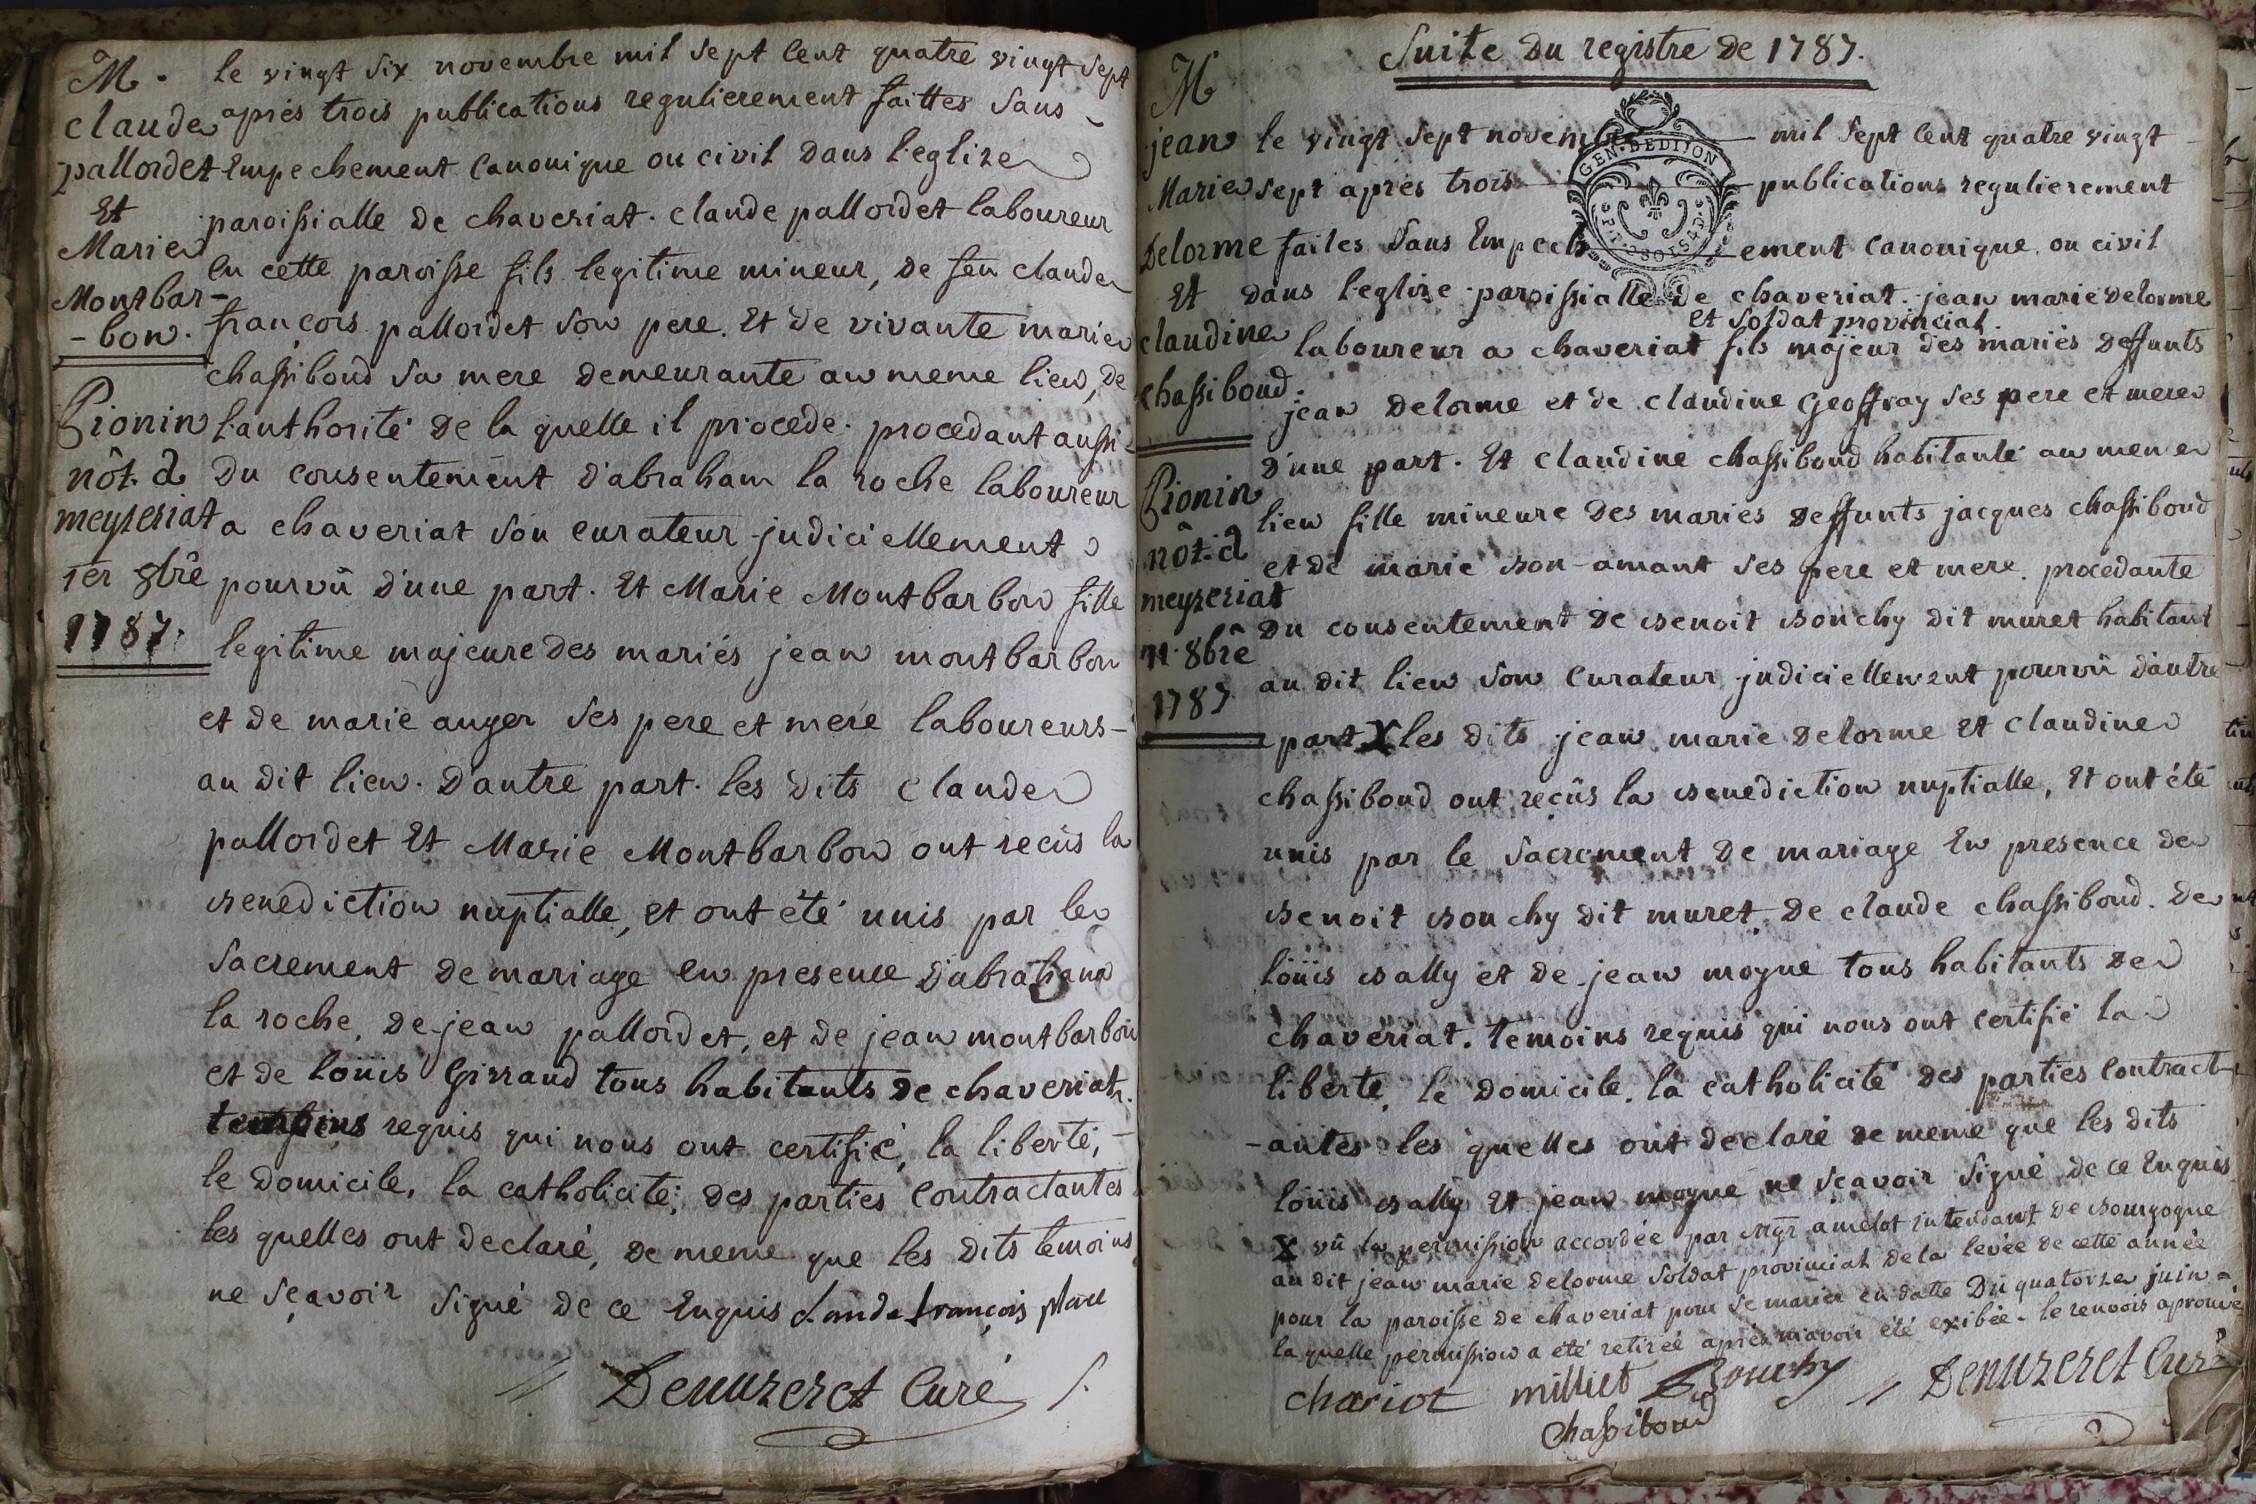 M.
claude
pallordet
Et
Marie
Montbar-
-bon.
Pionin
nôt. a
meyzeriat
1er 8bre
1787.
le vingt six novembre mil sept cent quatre vingt sept
après trois publications regulierement faittes sans
Empechement canonique ou civil dans l'eglize
paroissialle de chaveriat. claude pallordet laboureur
en cette paroisse fils legitime mineur, de feu claude
françois pallordet son pere. Et de vivante marie
chassiboud sa mere demeurante au meme lieu, de
l'authorité de la quelle il procede. procedant aussi
du consentement d'abraham la roche laboureur
a chaveriat son curateur judiciellement
pourvû d'une part. Et Marie Montbarbon fille
legitime majeure des mariés jean montbarbon
et de marie auger ses pere et mere laboureurs-
au dit lieu. d'autre part. les dits claude
pallordet Et Marie Montbarbon ont recûs la
benediction nuptialle, et ont été unis par le
sacrement de mariage en presence d'abraham
la roche, de jean pallordet, et de jean montbarbon
et de loüis Girraud tous habitants de chaveriat.
temoins requis qui nous ont certifié, la liberté,
le domicile, la catholicité, des parties contractantes
les quelles ont declaré, de meme que les dits temoins
ne sçavoir signé de ce Enquis claude françois place
Denuzeret Curé
Suite du registre de 1787.
M
jean
Marie
Delorme
Et
claudine
chassiboud.
Pionin
nôt. a
meyzeriat
11. 8bre
1787
GEN. DE DIJON
le vingt sept novembre mil sept cent quatre vingt
sept après trois publications regulierement
faites sans Empechement canonique ou civil
dans l'eglize paroissialle de chaveriat. jean marie delorme
et soldat provincial
laboureur a chaveriat fils majeur des mariés deffunts
jean delorme et de claudine Geoffray ses pere et mere
d'une part. Et claudine chassiboud habitante au meme
lieu fille mineure des mariés deffunts jacques chassiboud
et de marie bon-amant ses pere et mere. procedante
du consentement de benoit bouchy dit muret habitant
au dit lieu son curateur judiciellement pourvû d'autre
part X les dits jean marie delorme et claudine
chassiboud ont reçûs la benediction nuptialle, Et ont été
unis par le sacrement de mariage En presence de
benoit bouchy dit muret, de claude chassiboud. de
loüis bally et de jean moyne tous habitants de
chaveriat. temoins requis qui nous ont certifié la
liberté, le domicile, la catholicité des parties contract-
-antes les quelles ont declaré de meme que les dits
loüis bally Et jean moyne ne sçavoir signé de ce Enquis
X vû la permission accordée par Mgr amelot intendant de bourgogne
au dit jean marie delorme soldat provincial de la levée de cette année
pour la paroisse de chaveriat pour se marier en datte du quatorze juin
la quelle permission a été retirée après m'avoir été exibée. le renvois aprouvé
chariot milliet Bouchy Denuzeret Curé
Chassiboud